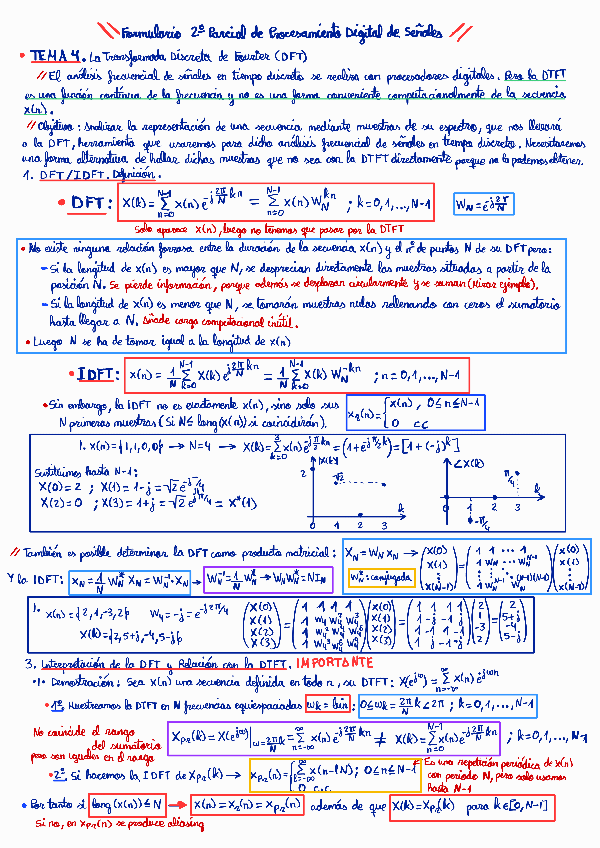 Formulario 2º Parcial de Procesamiento Digital de Señales
• TEMA 4. La Transformada Discreta de Fourier (DFT)
// El análisis frecuencial de señales en tiempo discreto se realiza con procesadores digitales. Pero la DTFT
es una función continua de la frecuencia y no es una forma conveniente computacionalmente de la secuencia
x(n).
// Objetivo: Analizar la representación de una secuencia mediante muestras de su espectro, que nos llevará
a la DFT, herramienta que usaremos para dicho análisis frecuencial de señales en tiempo discreto. Necesitaremos
una forma alternativa de hallar dichas muestras que no sea con la DTFT directamente porque no la podemos obtener.
1. DFT/IDFT. Definición.
• DFT: X(k) = Σ_{n=0}^{N-1} x(n) e^{-j 2π/N kn} = Σ_{n=0}^{N-1} x(n) W_N^{kn} ; k=0,1,...,N-1 W_N = e^{-j 2π/N}
Solo aparece x(n), luego no tenemos que pasar por la DTFT
• No existe ninguna relación forzosa entre la duración de la secuencia x(n) y el nº de puntos N de su DFT pero:
– Si la longitud de x(n) es mayor que N, se desprecian directamente las muestras situadas a partir de la
posición N. Se pierde información, porque además se desplazan circularmente y se suman (Mirar ejemplo).
– Si la longitud de x(n) es menor que N, se tomarán muestras nulas rellenando con ceros el sumatorio
hasta llegar a N. Añade carga computacional inútil.
• Luego N se ha de tomar igual a la longitud de x(n)
• IDFT: x(n) = 1/N Σ_{k=0}^{N-1} X(k) e^{j 2π/N kn} = 1/N Σ_{k=0}^{N-1} X(k) W_N^{-kn} ; n=0,1,...,N-1
• Sin embargo, la IDFT no es exactamente x(n), sino solo sus
N primeras muestras (Si N≤ long(x(n)) si coincidirán).
x_2(n) = { x(n), 0≤n≤N-1
0 c.c
1. x(n)={1,1,0,0} → N=4 → X(k)= Σ_{k=0}^{3} x(n) e^{-j π/2 kn} = (1+e^{-j π/2 k}) = [1+(-j)^k]
Sustituimos hasta N-1:
X(0)=2 ; X(1)=1-j = √2 e^{-jπ/4}
X(2)=0 ; X(3)=1+j = √2 e^{jπ/4} = X*(1)
|X(k)|
2
√2
0 1 2 3 k
∠X(k)
π/4
0 1 2 3 k
-π/4
// También es posible determinar la DFT como producto matricial: X_N = W_N x_N → (X(0) X(1) ⋮ X(N-1)) = (1 1 ... 1 1 W_N ... W_N^{N-1} ⋮ 1 W_N^{N-1} ... W_N^{(N-1)(N-1)}) (x(0) x(1) ⋮ x(N-1))
Y la IDFT: x_N = 1/N W_N* X_N = W_N^{-1} X_N → W_N^{-1} = 1/N W_N* → W_N W_N* = N I_N
W_N*: conjugada
1. x(n)={2,1,-3,2} W_4=-j=e^{-j2π/4}
X(k)={2,5+j,-4,5-j}
(X(0) X(1) X(2) X(3)) = (1 1 1 1 1 W_4 W_4^2 W_4^3 1 W_4^2 W_4^4 W_4^6 1 W_4^3 W_4^6 W_4^9) (x(0) x(1) x(2) x(3)) = (1 1 1 1 1 -j -1 j 1 -1 1 -1 1 j -1 -j) (2 1 -3 2) = (2 5+j -4 5-j)
3. Interpretación de la DFT y Relación con la DTFT. IMPORTANTE
• 1• Demostración: Sea x(n) una secuencia definida en todo n, su DTFT: X(e^{jω}) = Σ_{n=-∞}^{∞} x(n) e^{-jωn}
• 1º. Muestreamos la DTFT en N frecuencias equiespaciadas ω_k = 2πk/N : 0≤ω_k = 2π/N k < 2π ; k=0,1,...,N-1
No coincide el rango
del sumatorio
pero son iguales en el rango
X_{p2}(k) = X(e^{jω})|_{ω=2πk/N} = Σ_{n=-∞}^{∞} x(n) e^{-j 2π/N kn} ≠ X(k) = Σ_{n=0}^{N-1} x(n) e^{-j 2π/N kn} ; k=0,1,...,N-1
• 2º. Si hacemos la IDFT de X_{p2}(k) → x_{p2}(n) = { Σ_{l=-∞}^{∞} x(n-lN) ; 0≤n≤N-1
0 c.c.
Es una repetición periódica de x(n)
con periodo N, pero solo usamos
hasta N-1
• Por tanto si long(x(n)) ≤ N → x(n) = x_2(n) = x_{p2}(n) además de que X(k) = X_{p2}(k) para k∈[0,N-1]
Si no, en x_{p2}(n) se produce aliasing